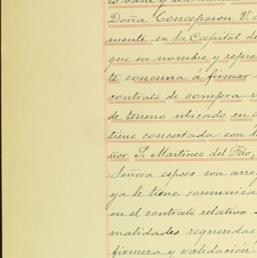 Doña Concepcion V. d
mente en la Capital de
que en nombre y repre
te concurra á firmar
contrato de compra-v
de terreno ubicado en
tiene concertada con
ñor P. Martinez del Rio,
Señora esposo con arre
ya le tiene comunica
en el contrato relativo
malidades requeridas
firmeza y validación.